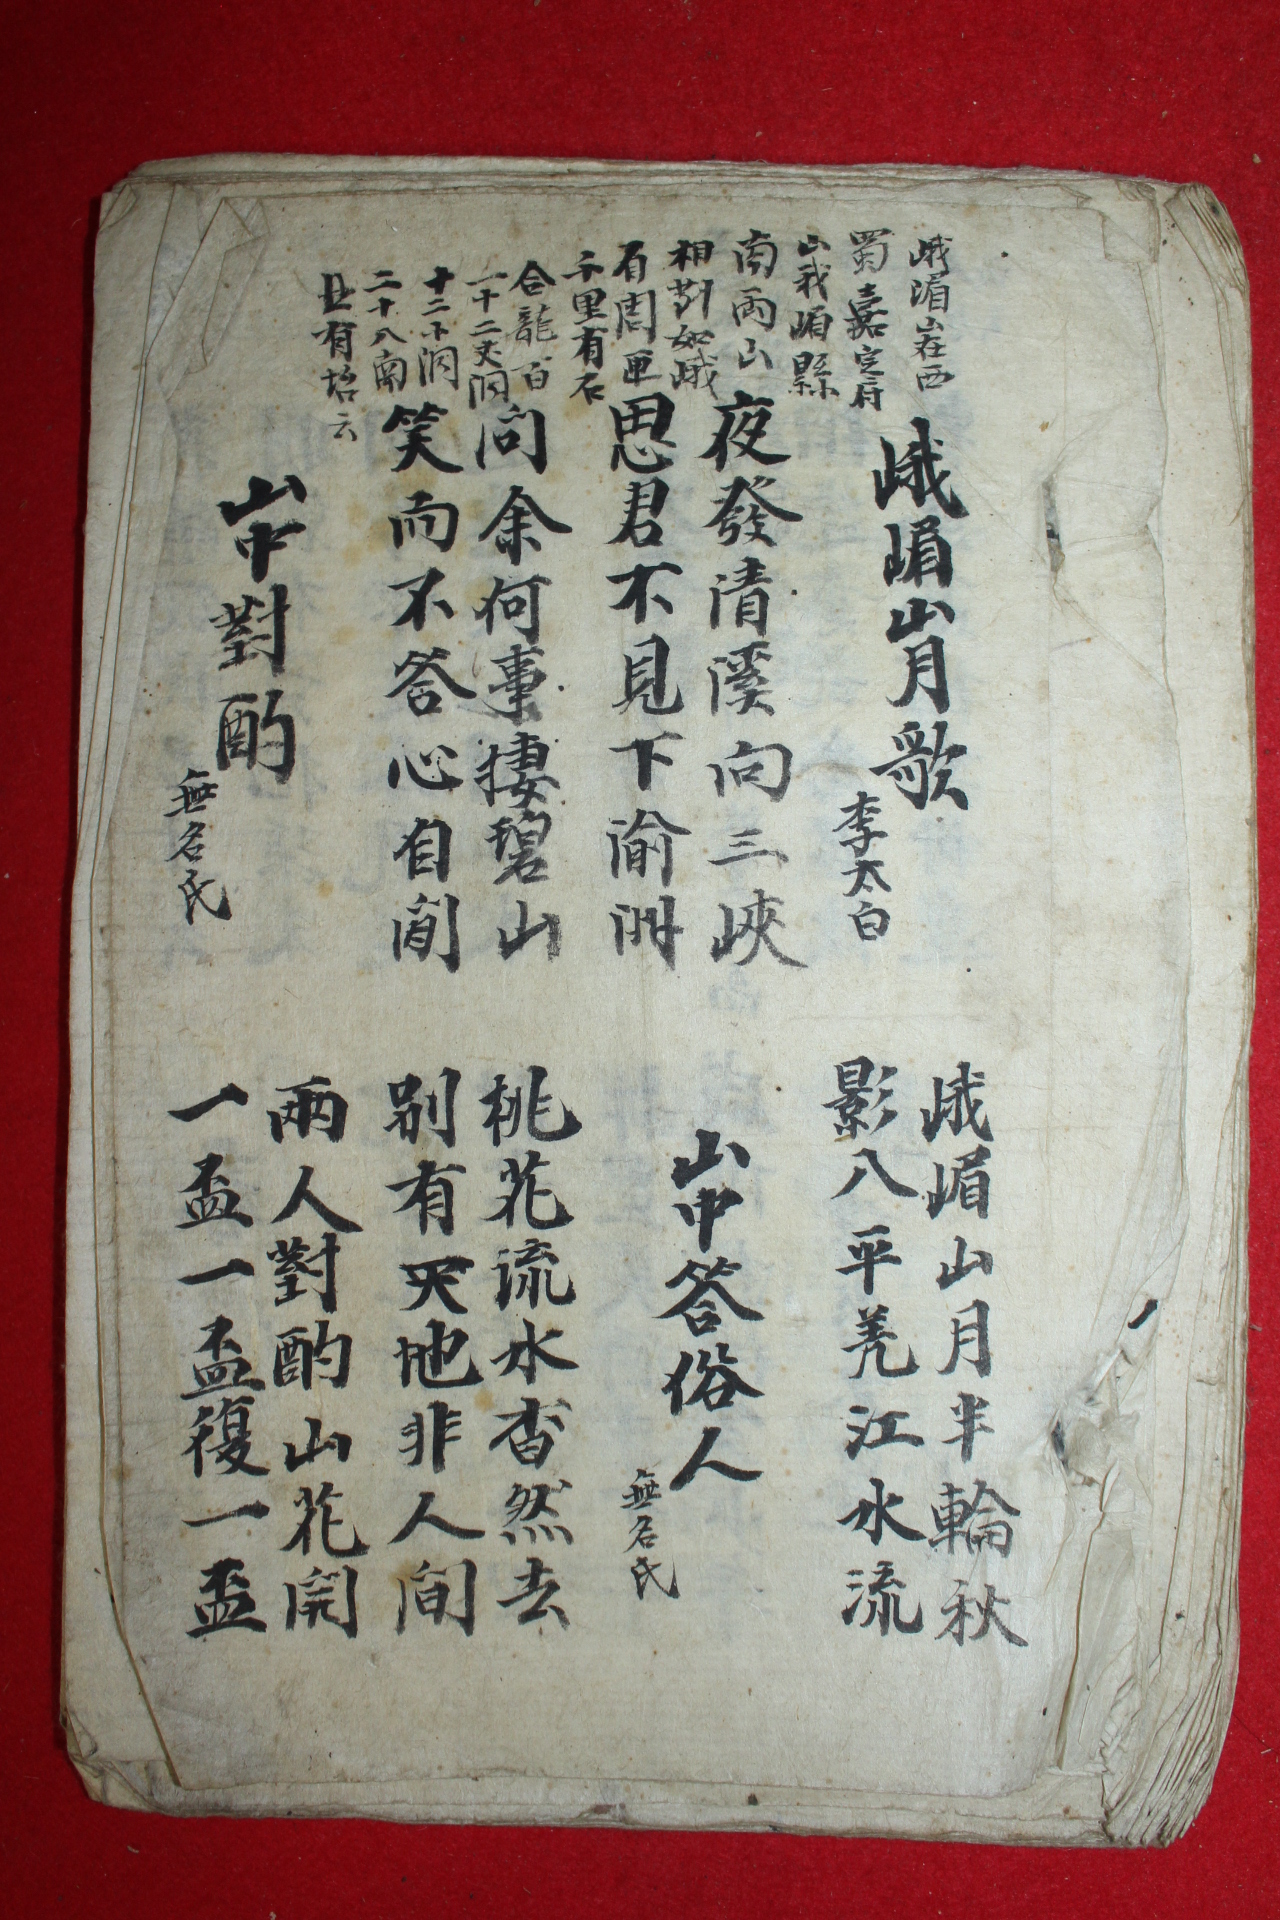 峨嵋山月歌
李太白
峨嵋山月半輪秋
影八平羌江水流
夜發清溪向三峽
思君不見下渝洲
山中答俗人
無名氏
問余何事捿碧山
笑而不答心自閒
桃花流水杳然去
別有天地非人間
山中對酌
無名氏
兩人對酌山花開
一盃一盃復一盃
峨湄山在西
蜀嘉定府
山峩嵋縣
南兩山
相對如峨
有周匝
千里有石
合龍百
一十二大洞
十二小洞
二十八南
且有 云